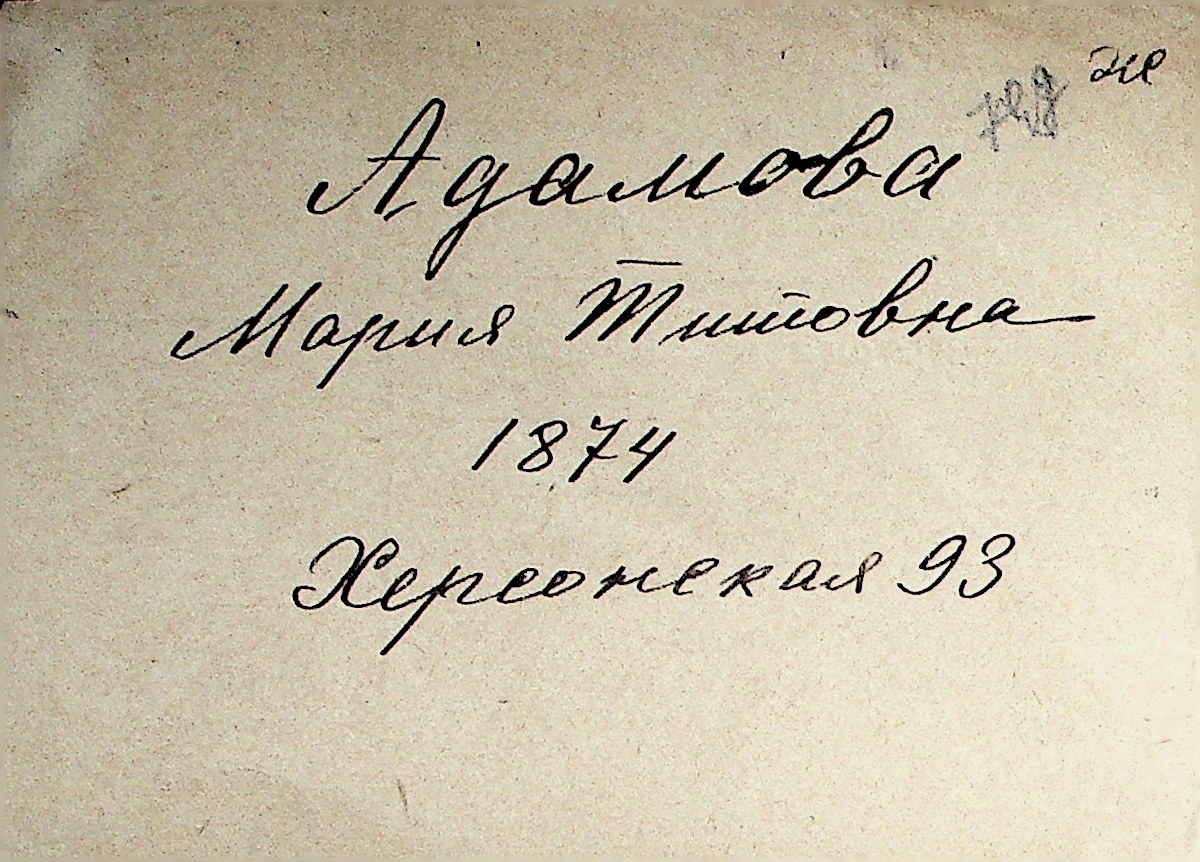 Адамова
Мария Титовна
1874
Херсонская 93